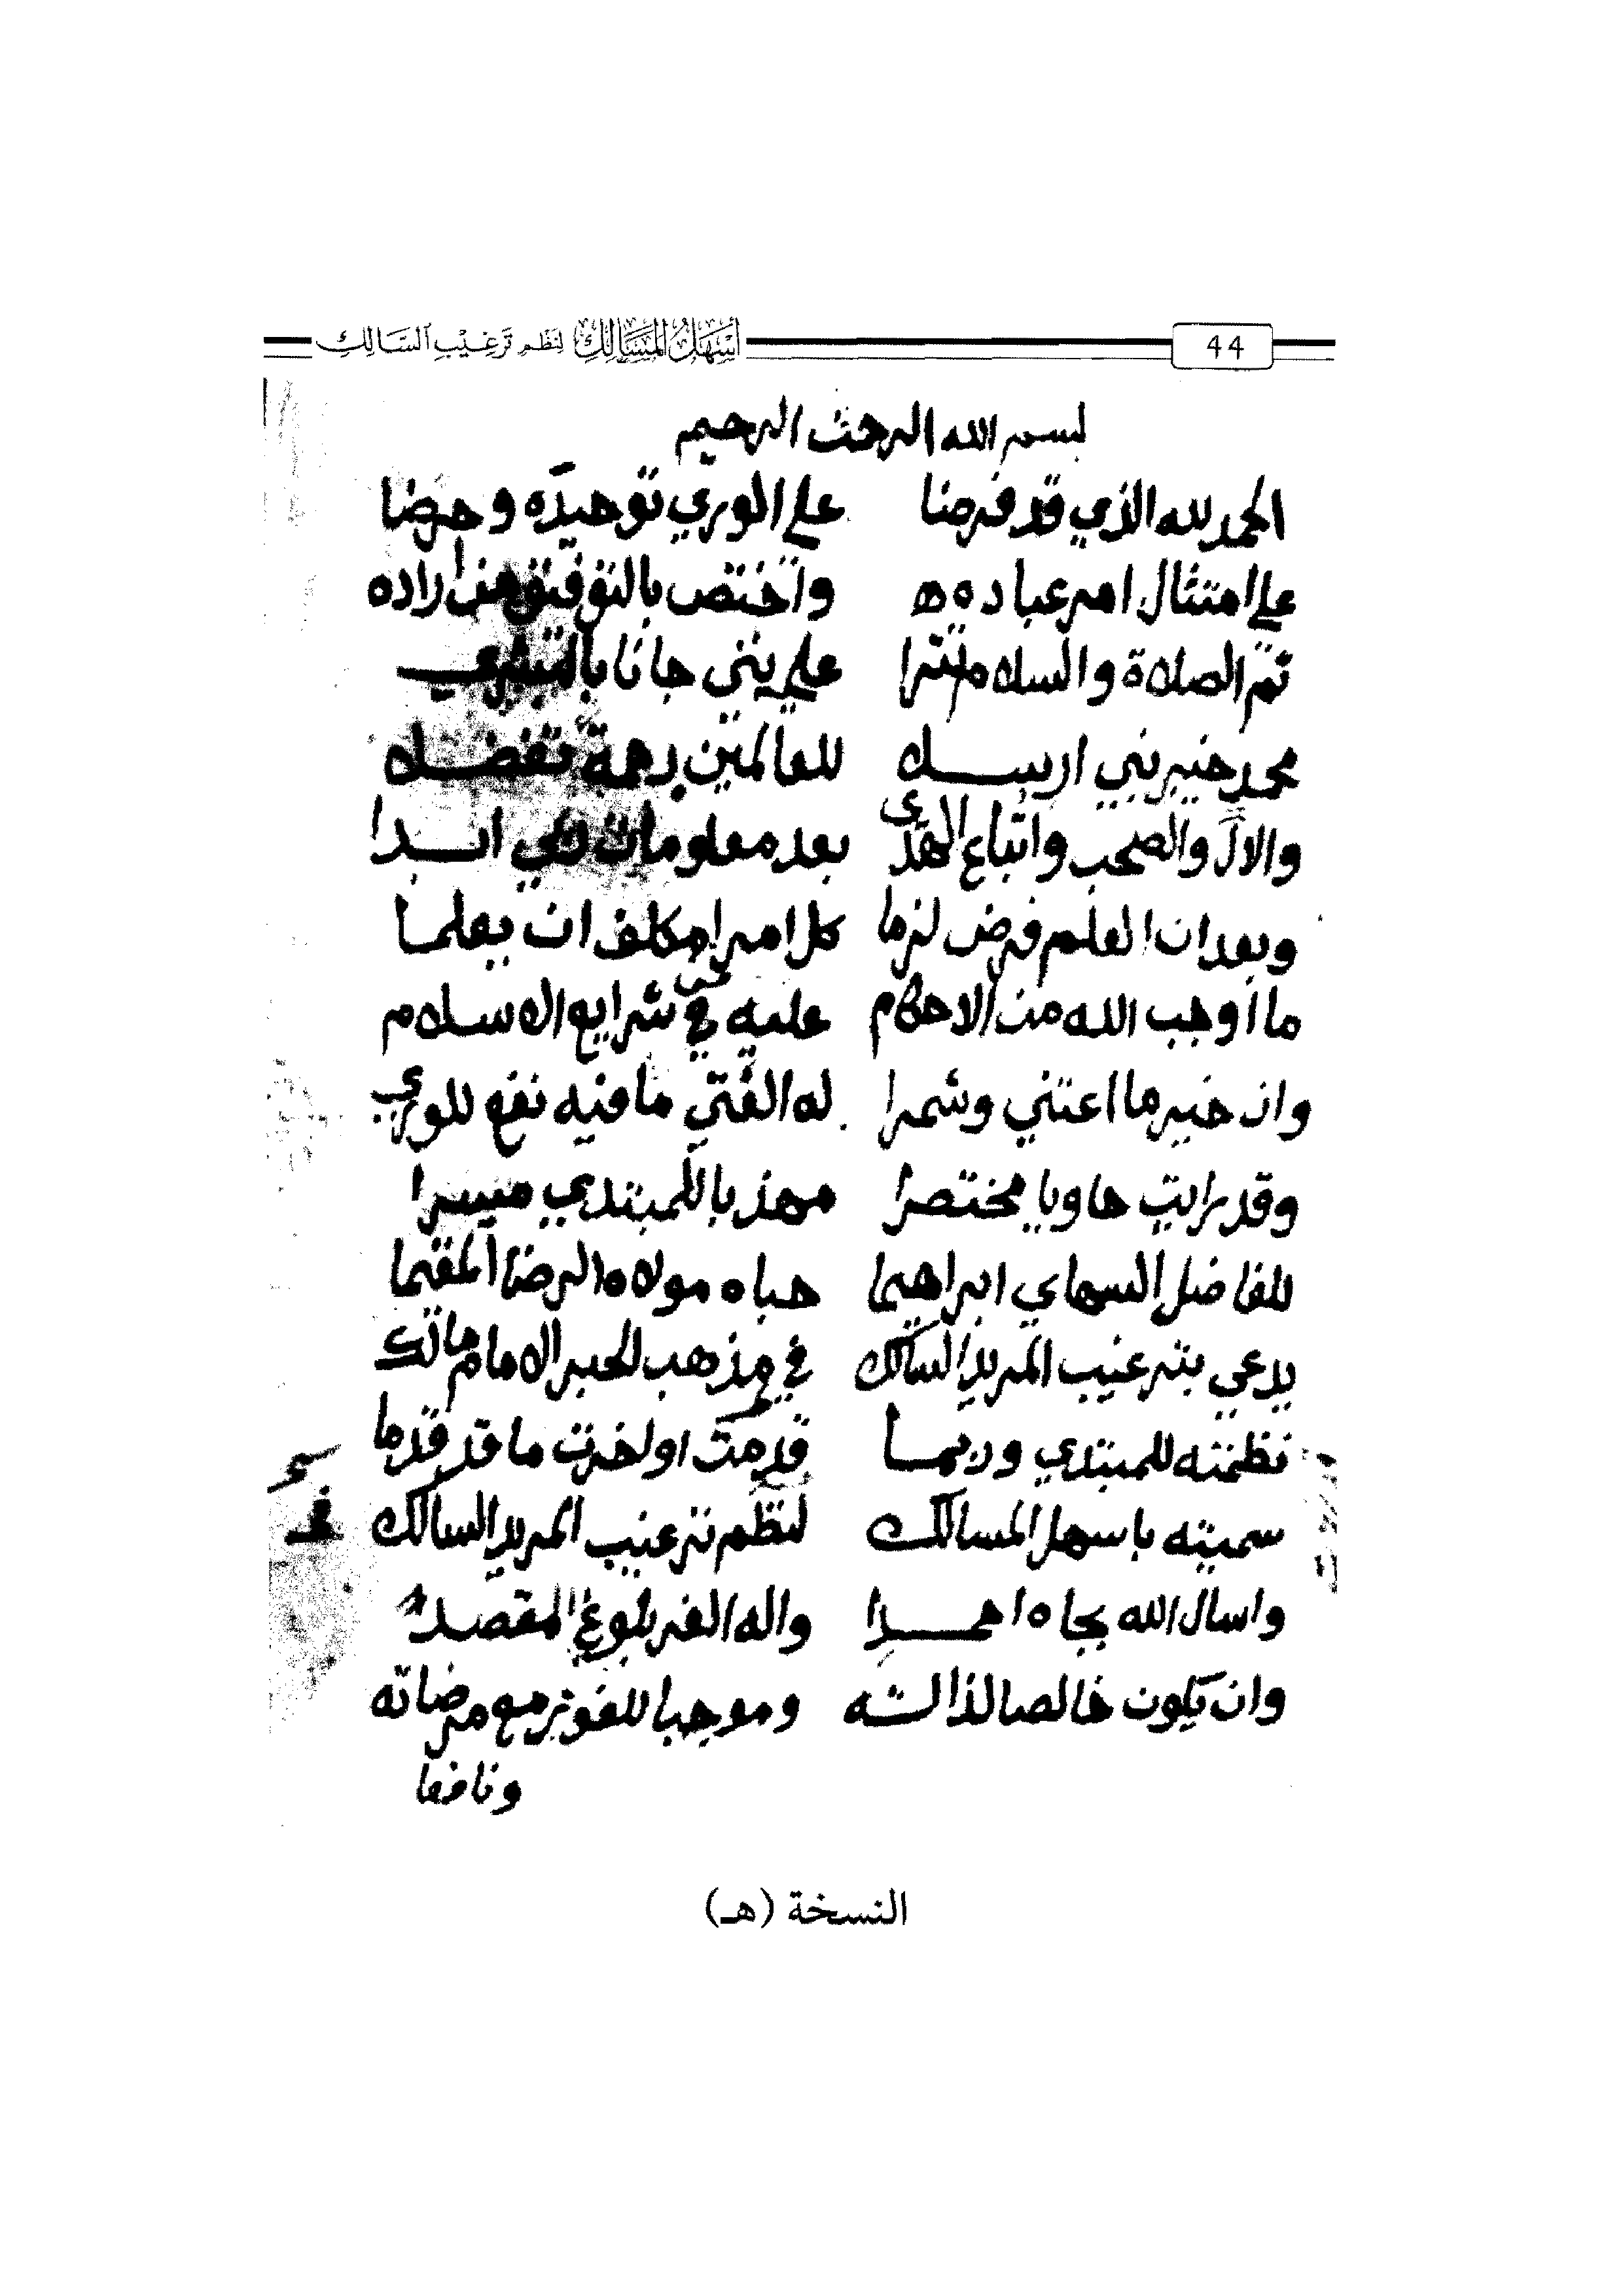 44 أسهل المسالك لنظم ترغيب السالك
بسم الله الرحمن الرحيم
الحمد لله الذي قد فرضا على الورى توحيده وحضا
على امتثال امر عباده واختص بالتوفيق من اراده
ثم الصلاة والسلام تترا على نبي جانا بالبشرى
محمد خير نبي ارسله للعالمين رحمة تفضله
والال والصحب واتباع الهدى بعد معلومات ابدا
وبعد ان العلم فرض لزما كل امرا مكلف ان يعلما
ما اوجب الله من الاحكام عليه في شرايع الاسلام
وان خير ما اعتنى وشمرا له الفتى ما فيه نفع للورى
وقد رايت حاويا مختصرا مهذبا للمبتدي ميسرا
للفاضل السهاي ابراهيما حباه مولاه الرضا المقيما
يدعي بترغيب المريد السالك في مذهب الحبر الامام مالك
نظمته للمبتدي وربما قدمت او اخرت ما قد قدما
سميته باسهل المسالك لنظم ترغيب المريد السالك
واسال الله بجاه احمدا واله الغر بلوغ المقصدا
وان يكون خالصا لذاته وموجبا للفوز مع مرضاته
ونافعا
النسخة (هـ)